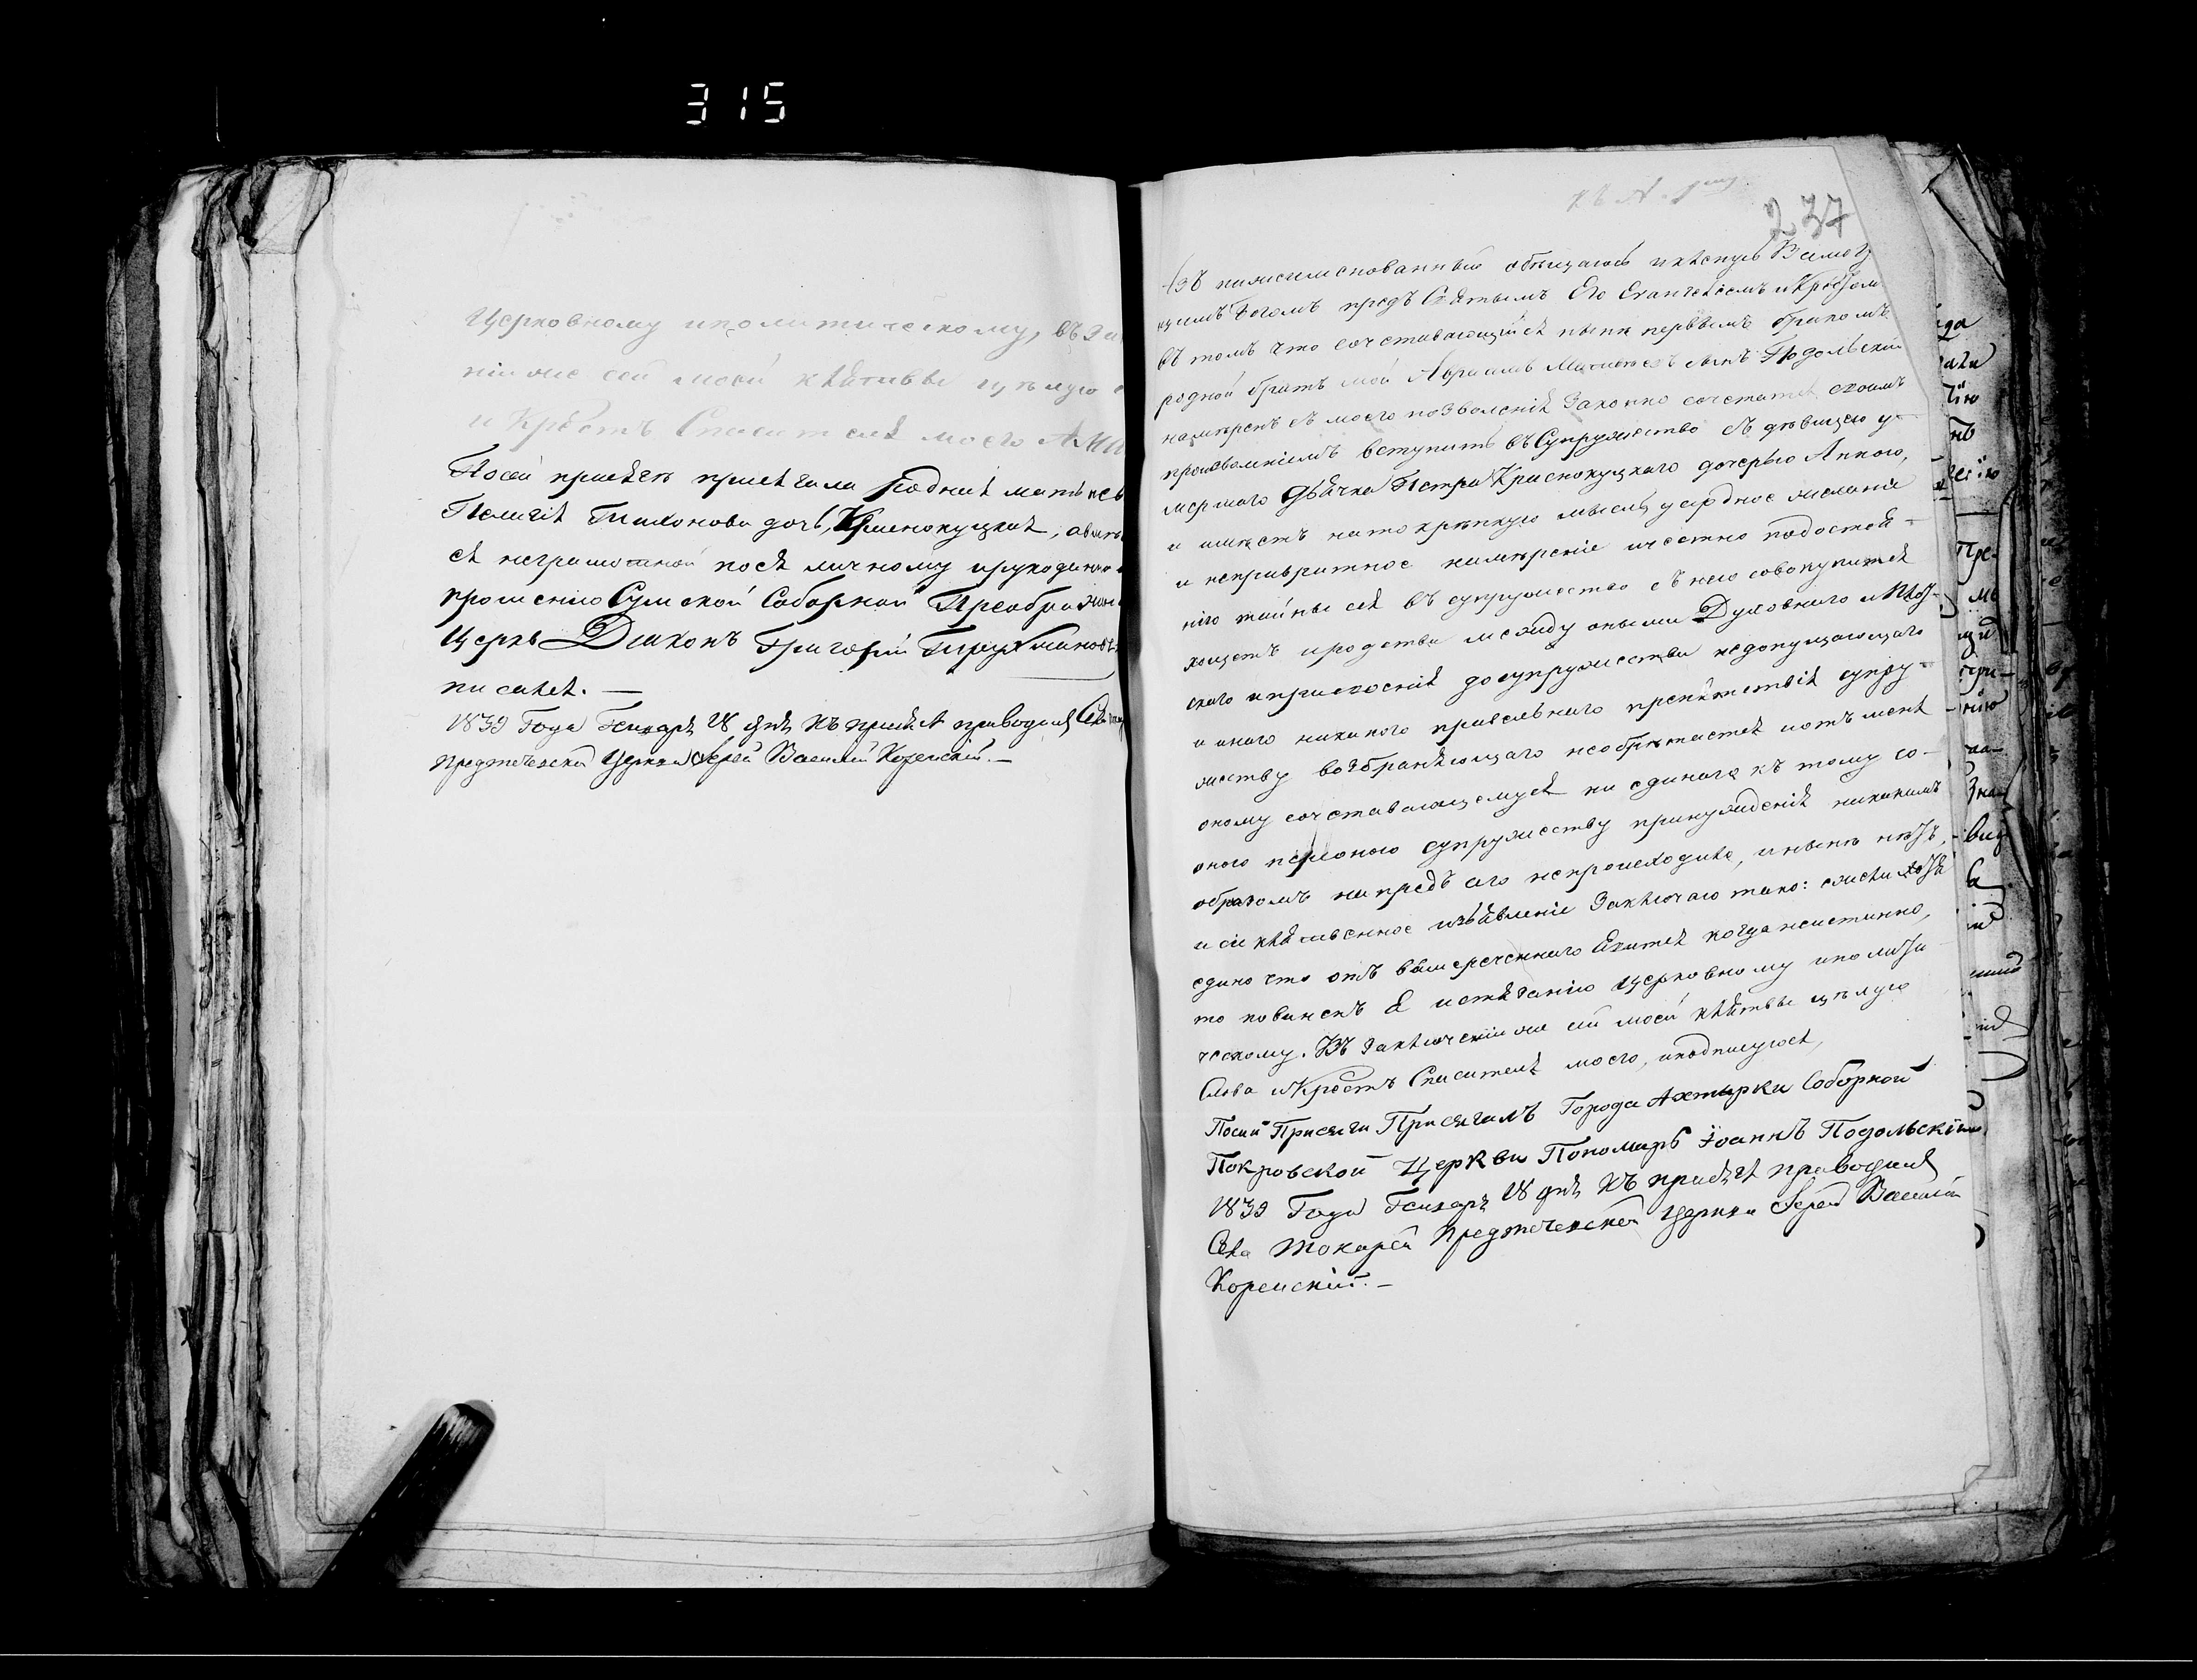 315
Церковному иполитическому, въ За
ніи же сей моей клятвы цѣлую
и Крестъ Спасителя моего Ами
Посей присягѣ присягала родная мать
Пелагія Тихонова дочь, Краснокуцкая,
ся неграмотной посѣ личному ирукоданно
прошенію Сумской Соборной Преображен
Церкв Діаконъ Григорій
писался. —
1839 Года Генваря 18 дня Къ присягѣ приводилъ
предтечевской Церкви Іерей Василій Корейскій. —
237
Азъ нижеименованный обѣщаюсь иклянусь Всемогу
щимъ Богомъ предъ Святымъ Его Евангеліемъ иКрестом
въ томъ что сочетавающійся нынѣ первымъ бракомъ
родной братъ мой Авраамъ Матвѣевъ сынъ Подольскій
намѣренъ съ моего позволенія Законно сочетатся, своимъ
произволеніемъ вступить въ Супружество съ дѣвицею у-
мершаго Дьячка Петра Краснокуцкаго дочерью Анною,
и имѣетъ нато крѣпкую мысль, усердное желаніе
и непривратное намѣреніе ичестно подостоя-
нію тайны сея въ супружество съ нею совокупится
хощетъ иродства между оными Духовного иПлот-
скаго иприсвоенія досупружества недопущающаго
и иного никакого правельного препятствія супру-
жеству возбраняющаго необрѣтается иотъ меня
оному сочетавающемуся ни единаго къ тому со-
оного персоною супружеству принужденія никакимъ
образомъ напредъ сего непроисходило, инынѣ нѣтъ,
и сіе клятвенное изъявленіе Заключаю тако: ежели хотя
едино что отъ вышереченнаго Явится когда неистинно,
то повиненъ Я истязанію Церковному иполити
ческому. Въ Заключеніи же сей моей клятвы цѣлую
Слова иКрестъ Спасителя моего, иподписуюся,
Посей Присяги Присягалъ Города Ахтырки Соборной
Покровской Церкви Пономарь Іоаннъ Подольскій
1839 Года Генваря 18 дня Къ присягѣ приводилъ
Села Токарей Предтечевской Церкви Іерей Василій
Корейскій. —